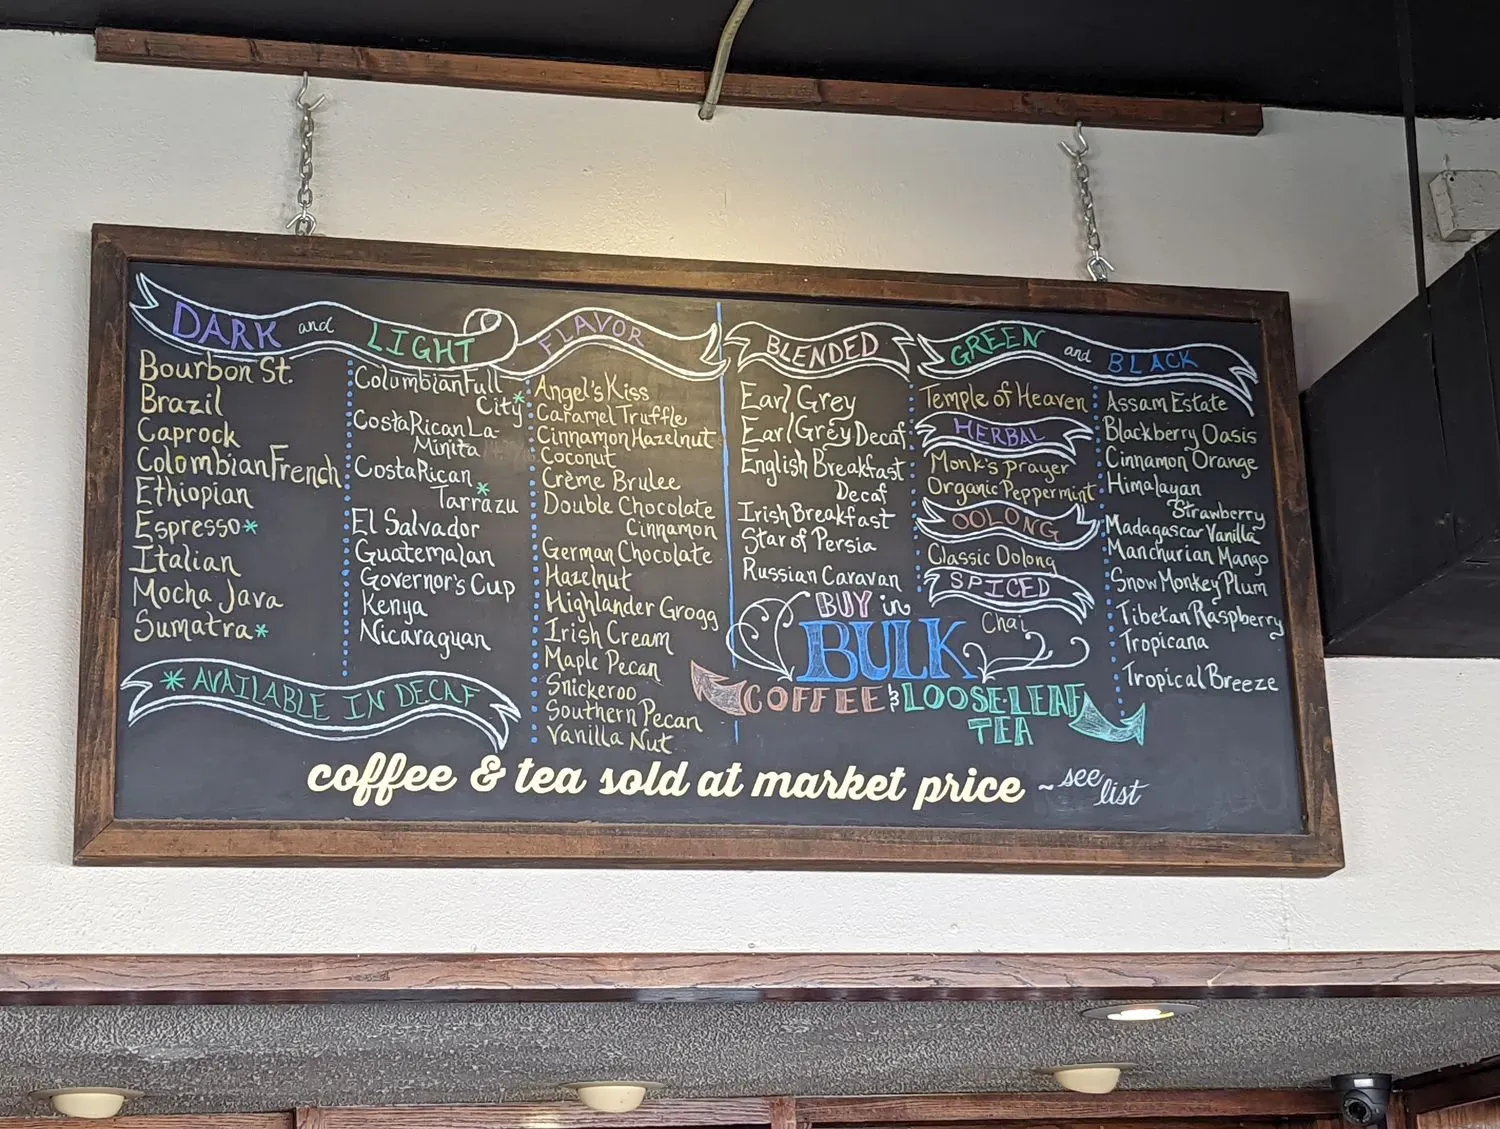 DARK and LIGHT
Bourbon St.
Brazil
Caprock
Colombian French
Ethiopian
Espresso*
Italian
Mocha Java
Sumatra*
Columbian Full
City*
Costa Rican La-
Minita
Costa Rican
Tarrazu*
El Salvador
Guatemalan
Governor's Cup
Kenya
Nicaraguan
* AVAILABLE IN DECAF
FLAVOR
Angel's Kiss
Caramel Truffle
Cinnamon Hazelnut
Coconut
Crème Brulee
Double Chocolate
Cinnamon
German Chocolate
Hazelnut
Highlander Grogg
Irish Cream
Maple Pecan
Snickeroo
Southern Pecan
Vanilla Nut
BLENDED
Earl Grey
Earl Grey Decaf
English Breakfast
Decaf
Irish Breakfast
Star of Persia
Russian Caravan
GREEN and BLACK
Temple of Heaven
HERBAL
Monk's Prayer
Organic Peppermint
OOLONG
Classic Oolong
SPICED
Chai
Assam Estate
Blackberry Oasis
Cinnamon Orange
Himalayan
Strawberry
Madagascar Vanilla
Manchurian Mango
Snow Monkey Plum
Tibetan Raspberry
Tropicana
Tropical Breeze
BUY in
BULK
COFFEE & LOOSE-LEAF
TEA
coffee & tea sold at market price ~ see
list